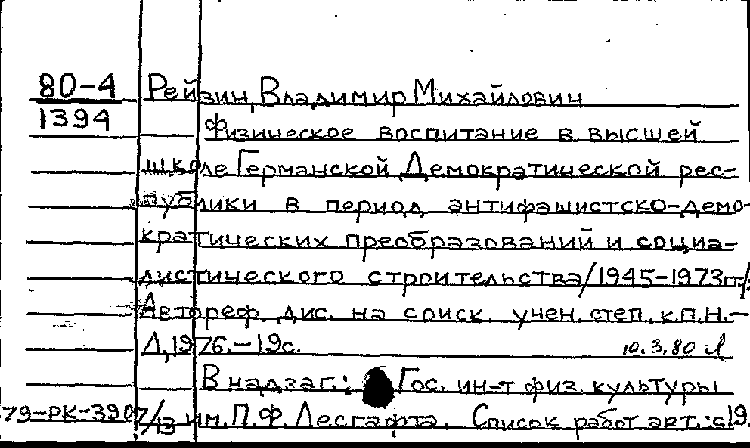 80-4 Рейзин, Владимир Михайлович
1394 Физическое воспитание в высшей
школе Германской Демократической рес-
публики в период антифашистско-демо-
кратических преобразований и социа-
листического строительства /1945-1973гг./:
Автореф. дис. на соиск. учен. степ. к.п.н.-
Л, 1976.-19с. 10.3.80
В надзаг.: Гос. ин-т физ. культуры
79-РК-3907/13 им. П.Ф. Лесгафта. Список работ авт.: с19